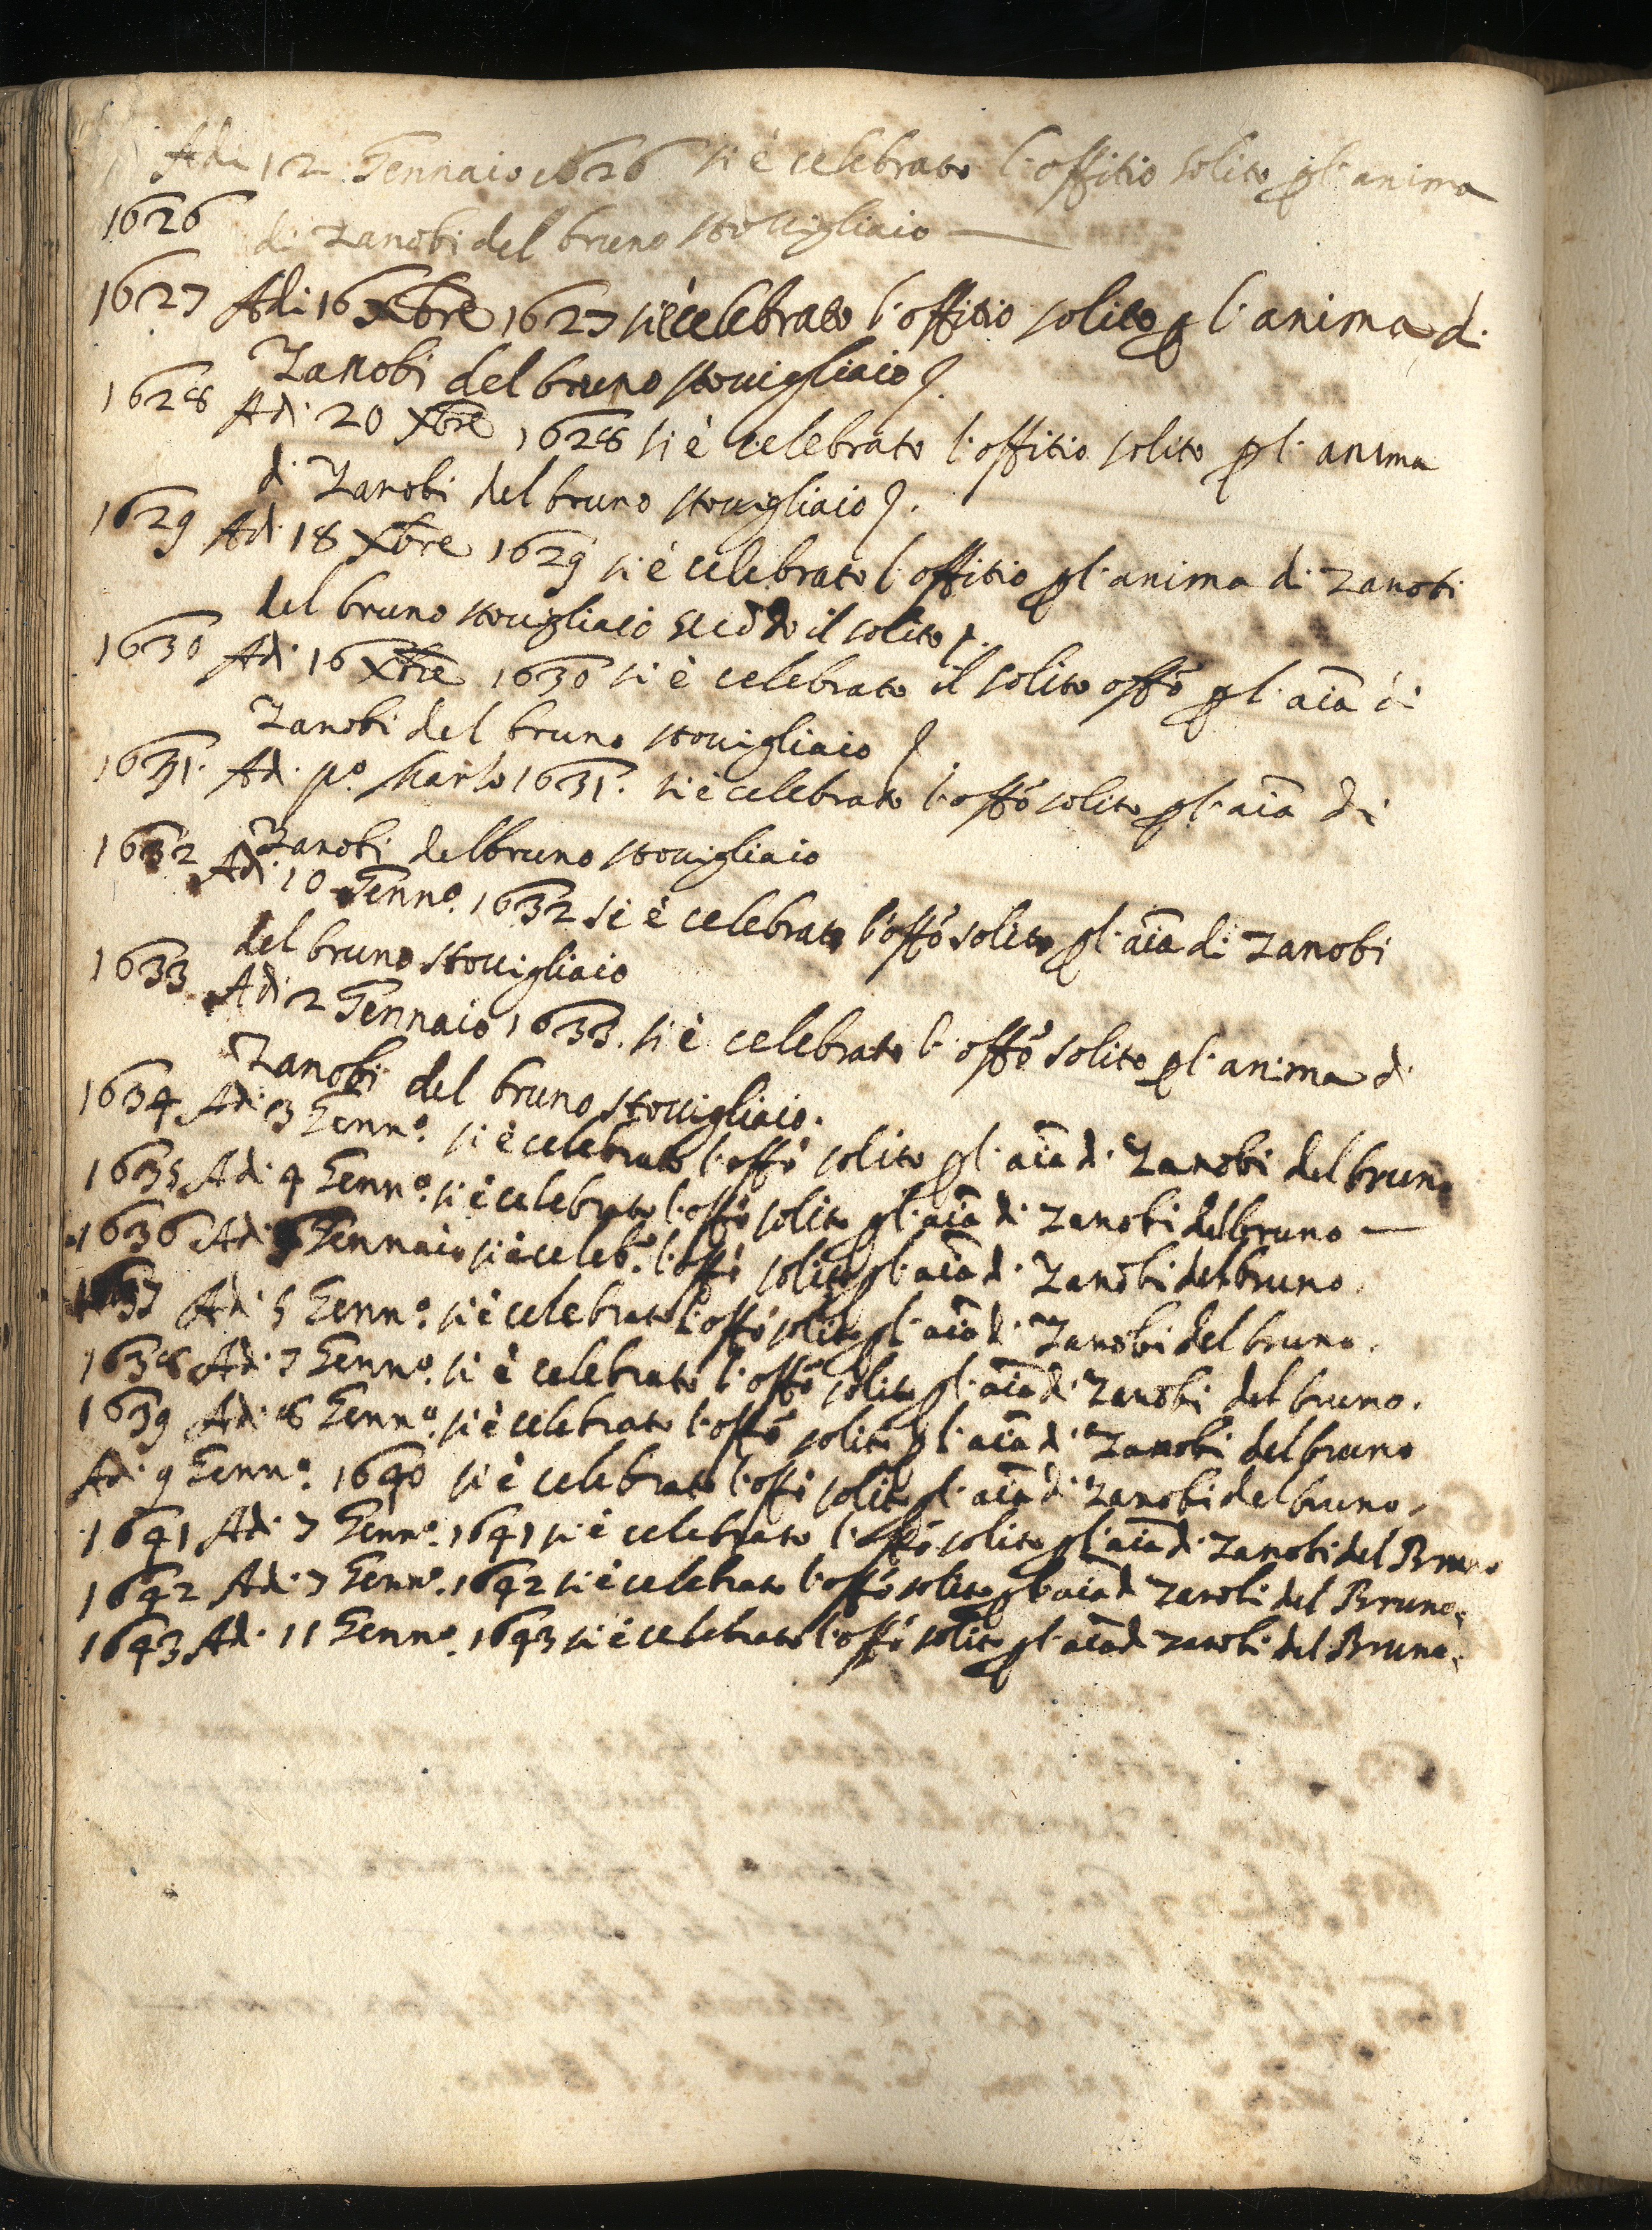 Adi 12 Gennaio 1626 si è celebrato l'offitio solito p l'anima
1626 di Zanobi del bruno stovigliaio
1627 Adi 16 Xbre 1627 si è celebrato l'offitio solito p l'anima di
Zanobi del bruno stovigliaio
1628 Adi 20 Xbre 1628 si è celebrato l'offitio solito p l'anima
di Zanobi del bruno stovigliaio
1629 Adi 18 Xbre 1629 si è celebrato l'offitio p l'anima di Zanobi
del bruno stovigliaio secōdo il solito
1630 Adi 16 Xbre 1630 si è celebrato il solito offo p l'aīa di
Zanobi del bruno stovigliaio
1631. Adi po. Marzo 1631. si è celebrato l'offo solito p l'aīa di
Zanobi del bruno stovigliaio
1632 Adi 10 Genno. 1632 si è celebrato l'offo solito p l'aīa di Zanobi
del bruno stovigliaio
1633 Adi 2 Gennaio 1633. si è celebrato l'offo solito p l'anima di
Zanobi del bruno stovigliaio.
1634 Adi 3 Genno. si è celebrato l'offo solito p l'aīa di Zanobi del bruno
1635 Adi 4 Genno. si è celebrato l'offo solito p l'aīa di Zanobi del bruno
1636 Adi Gennaio si è celebo. l'offo solito p l'aīa di Zanobi del bruno.
1637 Adi 5 Genno. si è celebrato l'offo solito p l'aīa di Zanobi del bruno.
1638 Adi 7 Genno. si è celebrato l'offo solito p l'aīa di Zanobi del bruno.
1639 Adi 8 Genno. si è celebrato l'offo solito p l'aīa di Zanobi del bruno
Adi 9 Genno. 1640 si è celebrato l'offo solito p l'aīa di Zanobi del bruno.
1641 Adi 7 Genno. 1641 si è celebrato l'offo solito p l'aīa di Zanobi del Bruno
1642 Adi 7 Genno. 1642 si è celebrato l'offo solito p l'aīa di Zanobi del Bruno.
1643 Adi 11 Genno. 1643 si è celebrato l'offo solito p l'aīa di Zanobi del Bruno.